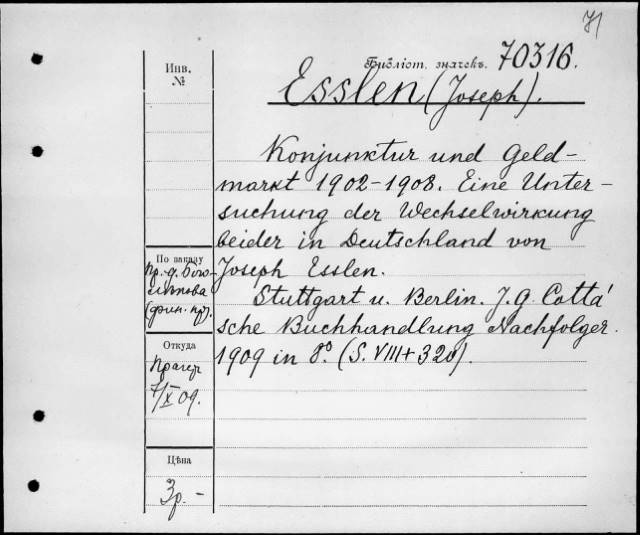 71
Библіот. значекъ. 70316.
Инв.
№
Esslen (Joseph).
Konjunktur und Geld-
markt 1902-1908. Eine Unter-
suchung der Wechselwirkung
beider in Deutschland von
Joseph Esslen.
Stuttgart u. Berlin. J. G. Cotta'
sche Buchhandlung Nachfolger.
1909 in 8°. (S. VIII + 320).
По заказу
пр. д. Бого-
лѣпова
(фин. пр.).
Откуда
Прагеръ
7/X 09.
Цѣна
3р. -